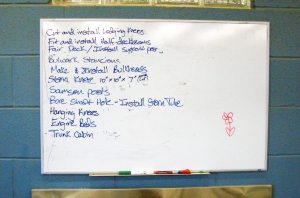 Cut and install Lodging Knees
Fit and install Half deckbeams
Fair Deck / Install support post
Bulwark Stancions
Make & Install Bulkheads
Stern Knee 10" x 10" x 7'
Samson posts
Bore Shaft Hole - Install Stern Tube
Hanging Knees
Engine Beds
- Trunk Cabin